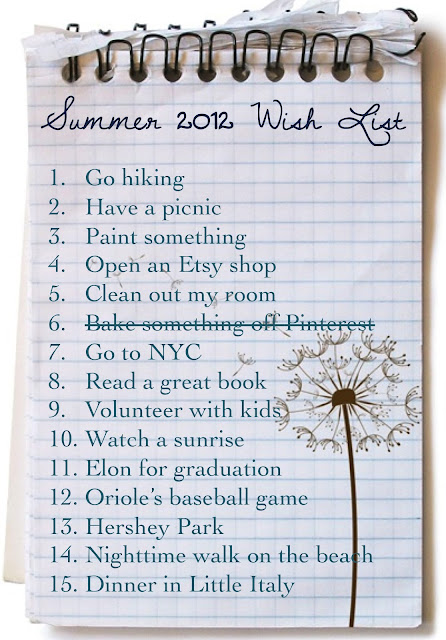 Summer 2012 Wish List
1. Go hiking
2. Have a picnic
3. Paint something
4. Open an Etsy shop
5. Clean out my room
6. Bake something off Pinterest
7. Go to NYC
8. Read a great book
9. Volunteer with kids
10. Watch a sunrise
11. Elon for graduation
12. Oriole's baseball game
13. Hershey Park
14. Nighttime walk on the beach
15. Dinner in Little Italy